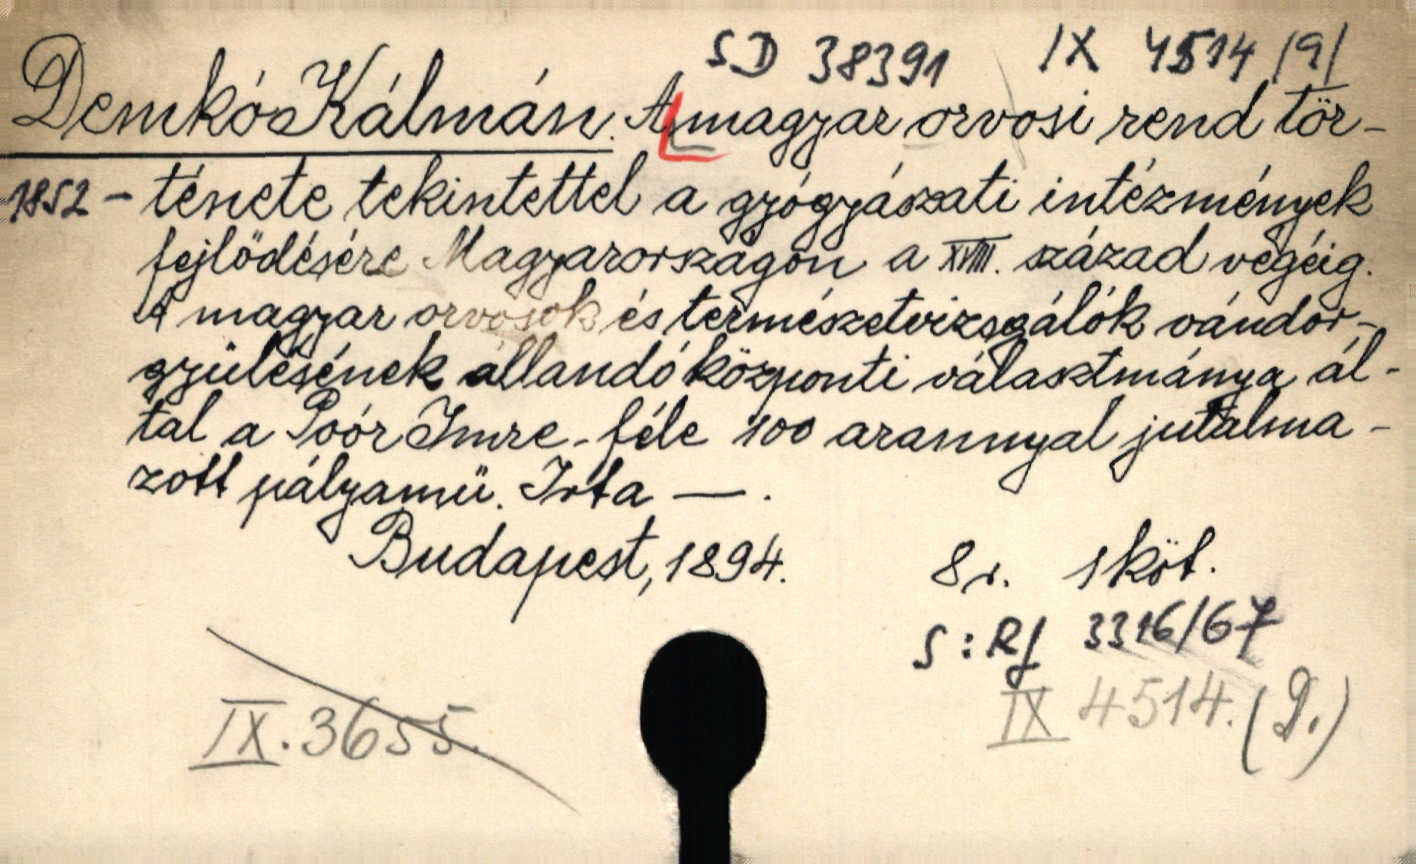 SD 38391 IX 4514 /9/
Demkó Kálmán. A magyar orvosi rend tör-
1852 - ténete tekintettel a gyógyászati intézmények
fejlödésére Magyarországon a XVIII. század végéig.
A magyar orvosok és természetvizsgálók vándor-
gyülésének állandó központi választmánya ál-
tal a Poór Imre-féle 100 arannyal jutalma-
zott pályamü. Irta — .
Budapest, 1894. 8r. 1 köt.
S: Rf 3316/67
IX 4514. (D.)
IX. 3655.